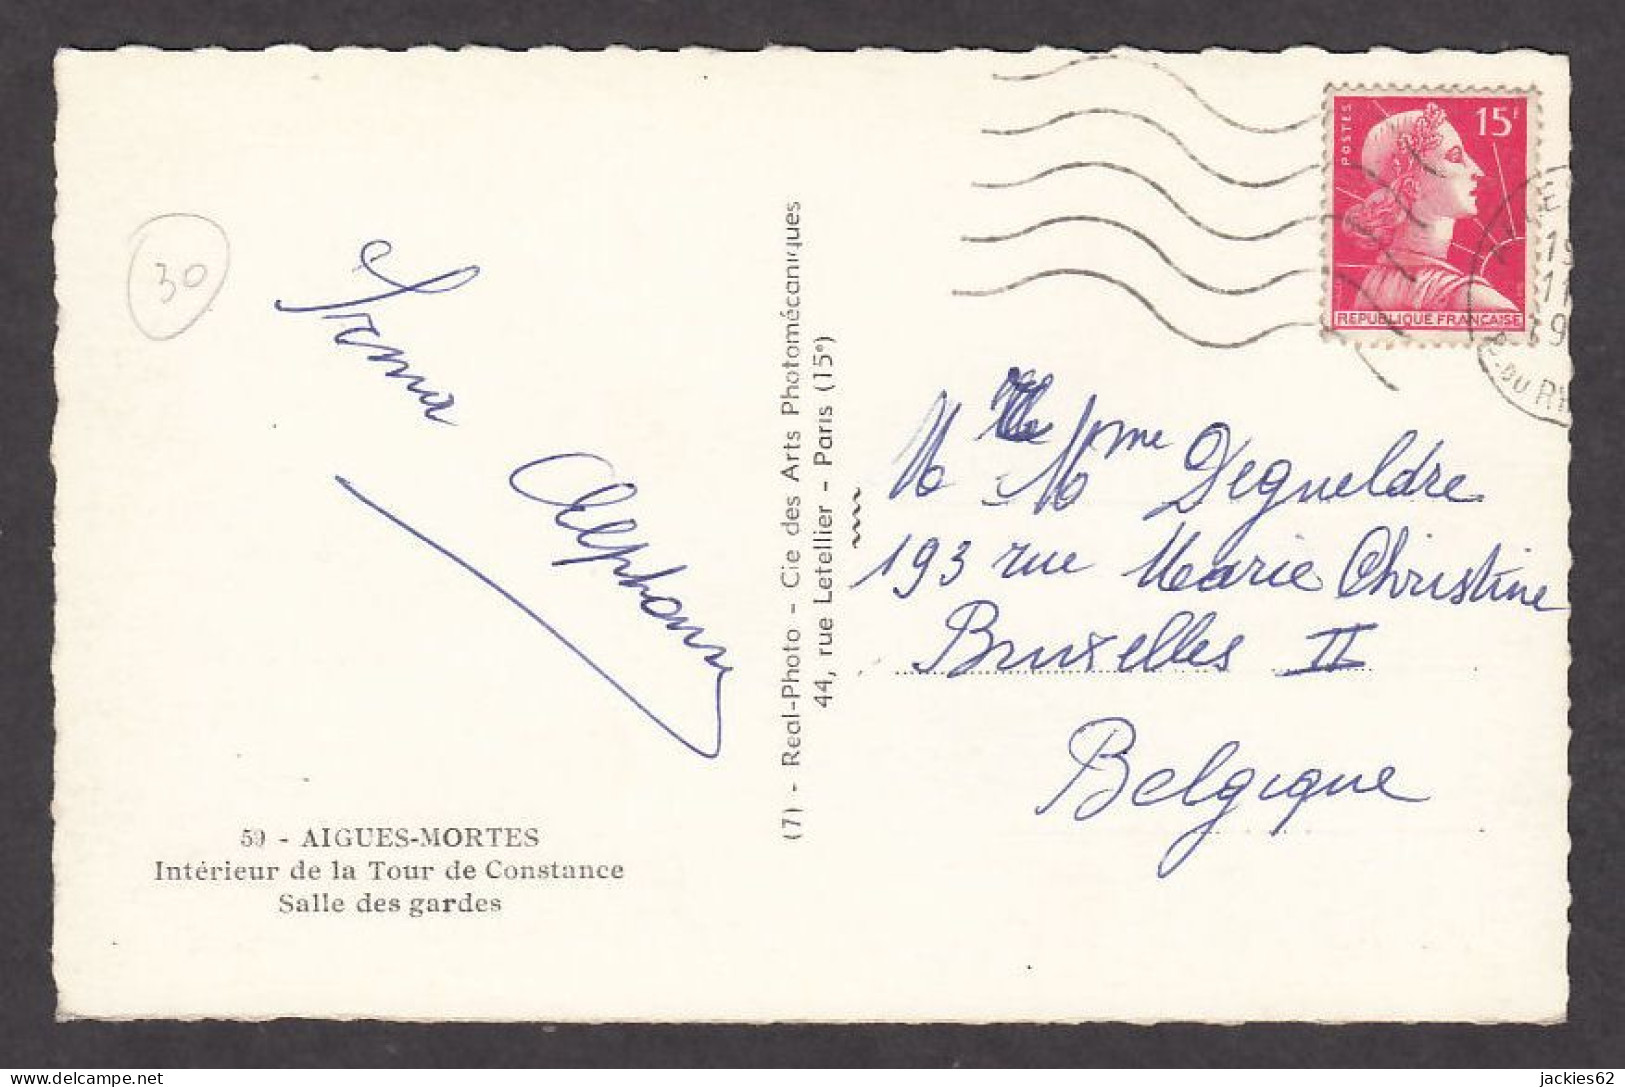 30
Irma
Alphonse
59 - AIGUES-MORTES
Intérieur de la Tour de Constance
Salle des gardes
(7) - Real-Photo - Cie des Arts Photomécaniques
44, rue Letellier - Paris (15e)
POSTES
15F
REPUBLIQUE FRANÇAISE
19
11
19
DU RH
M Mme Degueldre
193 rue Marie Christine
Bruxelles II
Belgique
jackies62